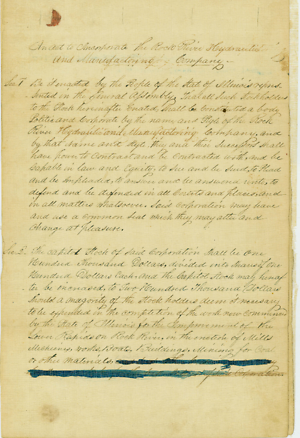 An act to Incorporate the Rock River Hydraulic
and Manufacturing Company.
Sec. 1 Be it enacted by the People of the State of Illinois repre
sented in the General Assembly, That all such Stockholders
to the Stock hereinafter Created, shall be constituted a body
Politic and Corporate by the name and style of the Rock
River Hydraulic and Manufacturing Company, and
by that name and style they and their successors shall
have power to Contract and be contracted with, and be
capable in law and equity to sue and be sued, to plead
and be impleaded, to answer and be answered unto, to
defend and be defended in all Courts and places and
in all matters whatsoever. Said corporation may have
and use a common seal which they may alter and
change at pleasure.
Sec. 2. The capital Stock of said corporation shall be One
Hundred thousand Dollars, divided into shares of One
Hundred Dollars Each and the Capitol Stock may
to be increased to Two Hundred Thousand Dollars
should a majority of the Stock holders deem it necessary
to be expended in the completion of the work now commenced
by the State of Illinois for the Improvement of the
Rapids on Rock River, in the erection of Mills
Machinery works, Boats, Buildings, Mining for Coal
or other materials